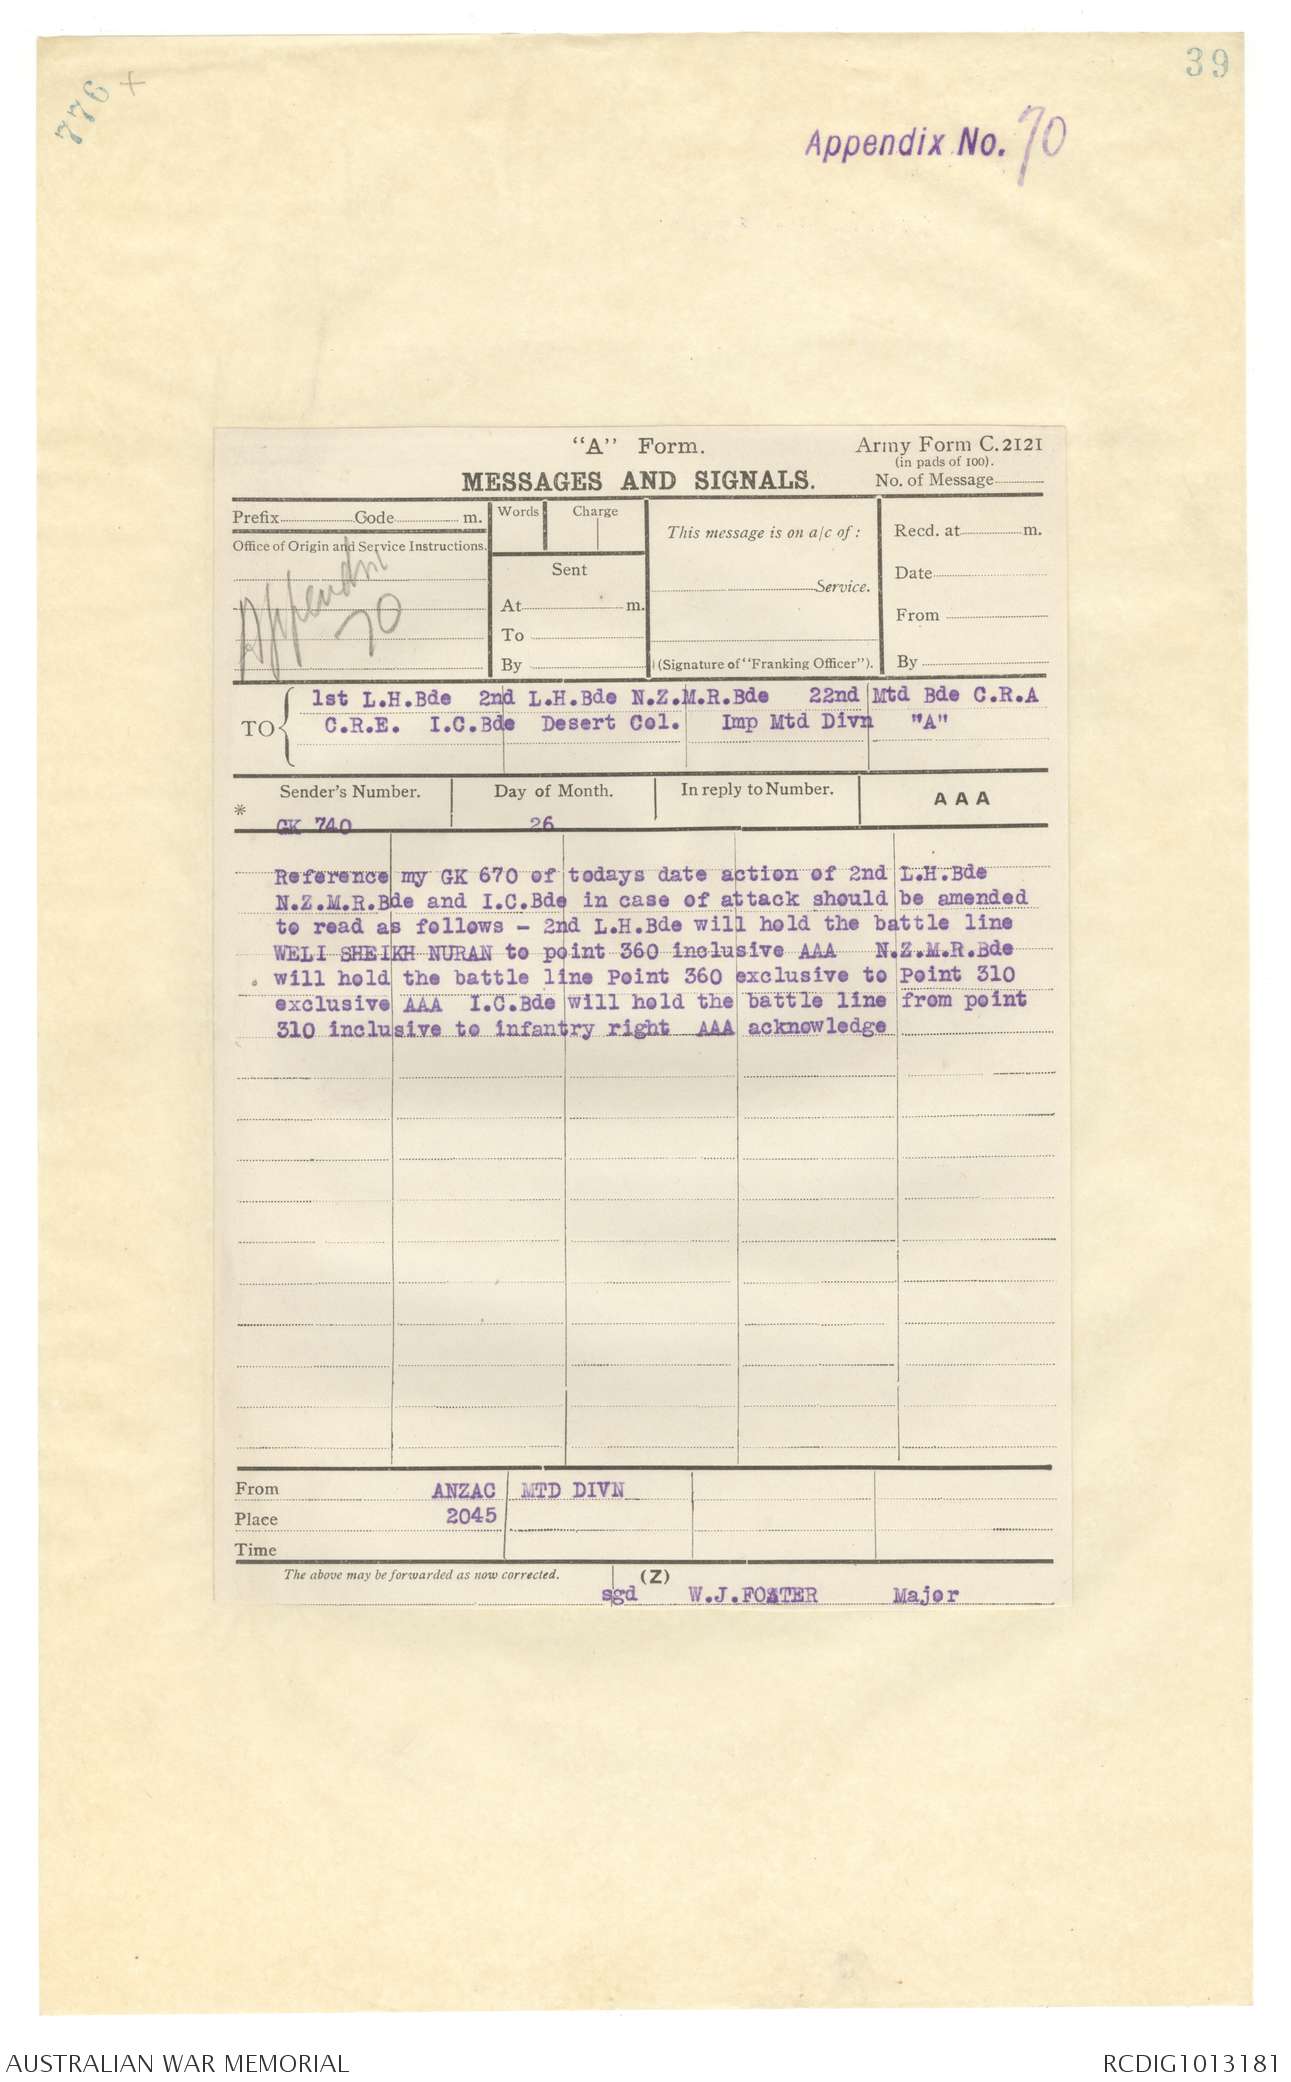 39
776 +
Appendix No. 70
"A" Form.
Army Form C.2121
(in pads of 100).
MESSAGES AND SIGNALS.
No. of Message
Prefix Code m.
Words Charge
This message is on a/c of :
Recd. at m.
Office of Origin and Service Instructions.
Appendix
70
Sent
At m.
To
By
Service.
(Signature of "Franking Officer").
Date
From
By
TO
1st L.H.Bde 2nd L.H.Bde N.Z.M.R.Bde 22nd Mtd Bde C.R.A
C.R.E. I.C.Bde Desert Col. Imp Mtd Divn "A"
Sender's Number. Day of Month. In reply to Number. AAA
* GK 740 26
Reference my GK 670 of todays date action of 2nd L.H.Bde
N.Z.M.R.Bde and I.C.Bde in case of attack should be amended
to read as follows - 2nd L.H.Bde will hold the battle line
WELI SHEIKH NURAN to point 360 inclusive AAA N.Z.M.R.Bde
will hold the battle line Point 360 exclusive to Point 310
exclusive AAA I.C.Bde will hold the battle line from point
310 inclusive to infantry right AAA acknowledge
From ANZAC MTD DIVN
Place 2045
Time
The above may be forwarded as now corrected. (Z)
sgd W.J.FOSTER Major
AUSTRALIAN WAR MEMORIAL
RCDIG1013181